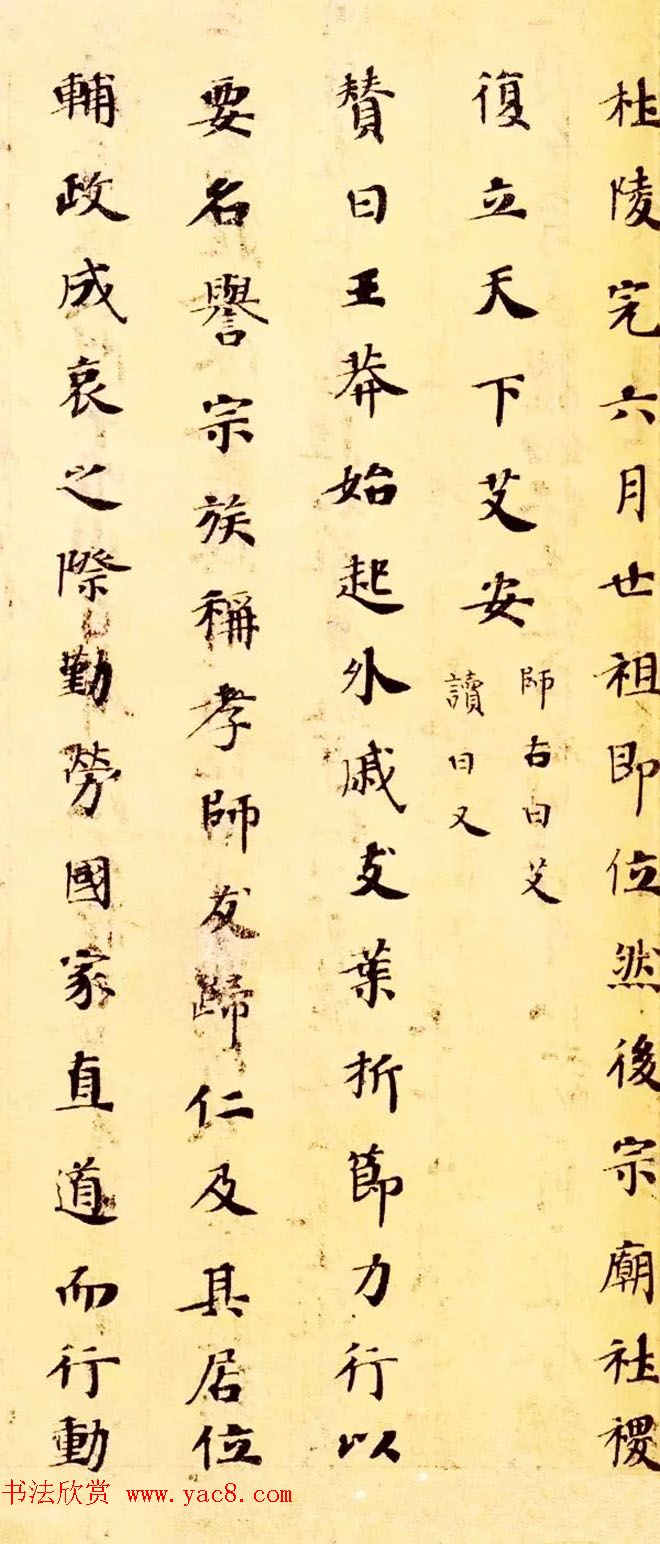 杜陵完六月世祖即位然後宗廟社稷
復立天下艾安
師古曰艾
讀曰乂
賛曰王莽始起外戚支葉折節力行以
要名譽宗族稱孝師友歸仁及其居位
輔政成哀之際勤勞國家直道而行動
书法欣赏 www.yac8.com